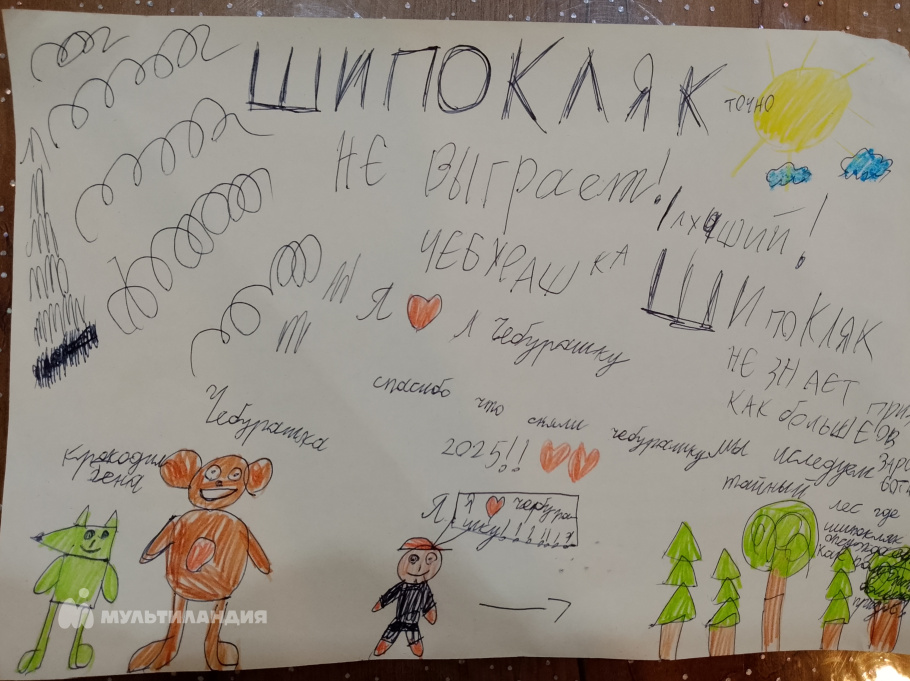 ШИПОКЛЯК точно
НЕ ВЫГРАЕТ!
ЧЕБУРАШКА лучший!
Я ❤ Чебурашку
ШИПОКЛЯК
НЕ ЗНАЕТ
КАК больше
спасибо что сняли чебурашку
2025!! ❤❤
мы иследуем
тайный лес где
шипокляк
Чебурашка
крокодил
гена
Я
Я ❤ чебура
шку!!!!!!
МУЛЬТИЛАНДИЯ